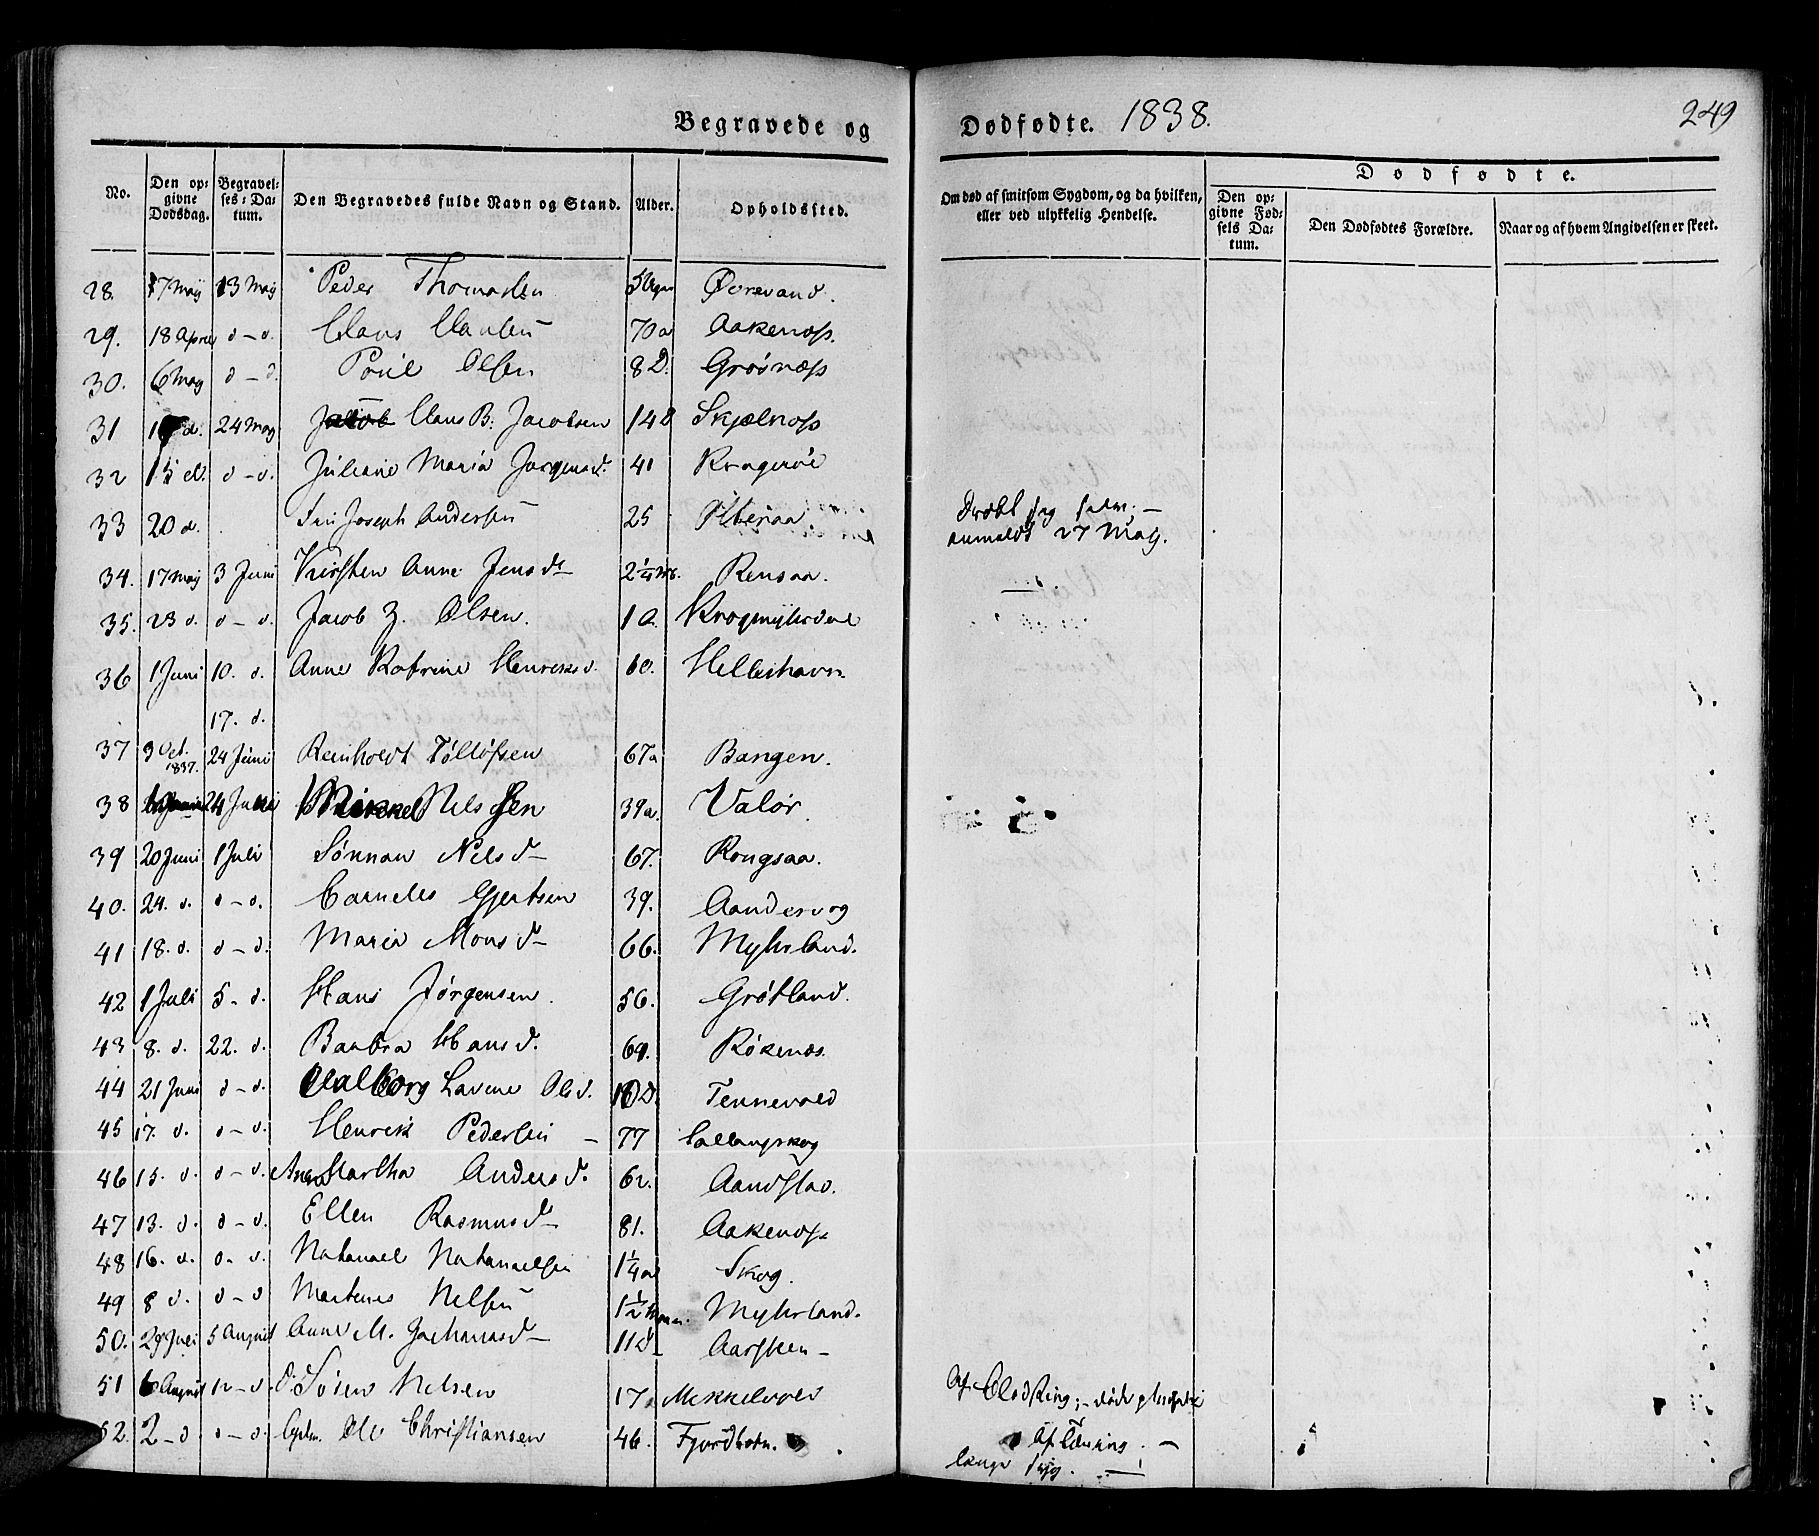 Begravede og Dødfødte. 1838. 249
No. Den opgivne Dødsdag. Begravelses-Datum. Den Begravedes fulde Navn og Stand. Alder. Opholdssted. Om død af smitsom Sygdom, og da hvilken, eller ved ulykkelig Hendelse. Dødfødte. Den opgivne Fødsels Datum. Den Dødfødtes Forældre. Naar og af hvem Angivelsen er skeet.
28. 7 Maij 13 Maij Peder Thomassen Örevand.
29. 18 April d - d. Claus Clausen 70 a Aakenæss.
30. 6 May d - d. Poül Olsen 8 D. Groönæss
31 d. 24 May Claus B. Jacobsen 14 D Skjælnæss
32 15 d. d - d. Juliane Maria Jørgensd. 41 Krageröe
33 20 d. Joseph Andersen 25 Dræbt sig selv. - anmeldt 27 Maij.
34. 17 Maij 3 Juni Kirsten Anne Jensd 2 1/4 Rensaa.
35. 23 d. d - d. Jacob Z. Olsen. 1 a. Krogmyhrdal
36 1 Juni 10. d. Anne Katrine Henriksd. 60. Helleshavn.
17. d.
37 3 Oct. 1837. 24 Juni Reinholdt Tølløfsen 67 a Bangen.
38 24 Juni Mikkel Nelssen 39 a. Valør.
39 20 Juni 1 Juli Sønnau Nelsd 67. Rongsaa.
40. 24. d. d - d. Cornelis Gjertsen 39. Aandervog
41 18. d. d - d. Maria Monsd 66. Myhrland.
42 1 Juli 5 - d. Hans Jørgensen. 56. Grøtland.
43 8. d. 22. d. Barbra Hansd. 69. Røkenæs.
44 21 Juni d - d. Aalborg Lavine Olsd. 10 D. Tennevold
45 17. d. d - d. Henrik Pedersen - 77 Sallangskog
46 15. d. d - d. Anne Martha Andersd. 62. Aandstad.
47 13. d. d - d. Ellen Rasmusd 81. Aakenæss
48 16. d. d. d. Nathanael Nathanaelsen 1 1/4 a Skog.
49 8 d. d - d Martenes Nelsen 1 1/2 Myhrland.
50. 29 Juli 5 August Anne M. Zachariasd 11 D Aarsteen -
51 6 August 12 - d. Sören Nelsen 17 a Mekkelvold Af Blodsting; - døde
52. 2 - d d - d. Ole Christiansen 46. Fjordbotn. Af Tæring. - lange syg. -